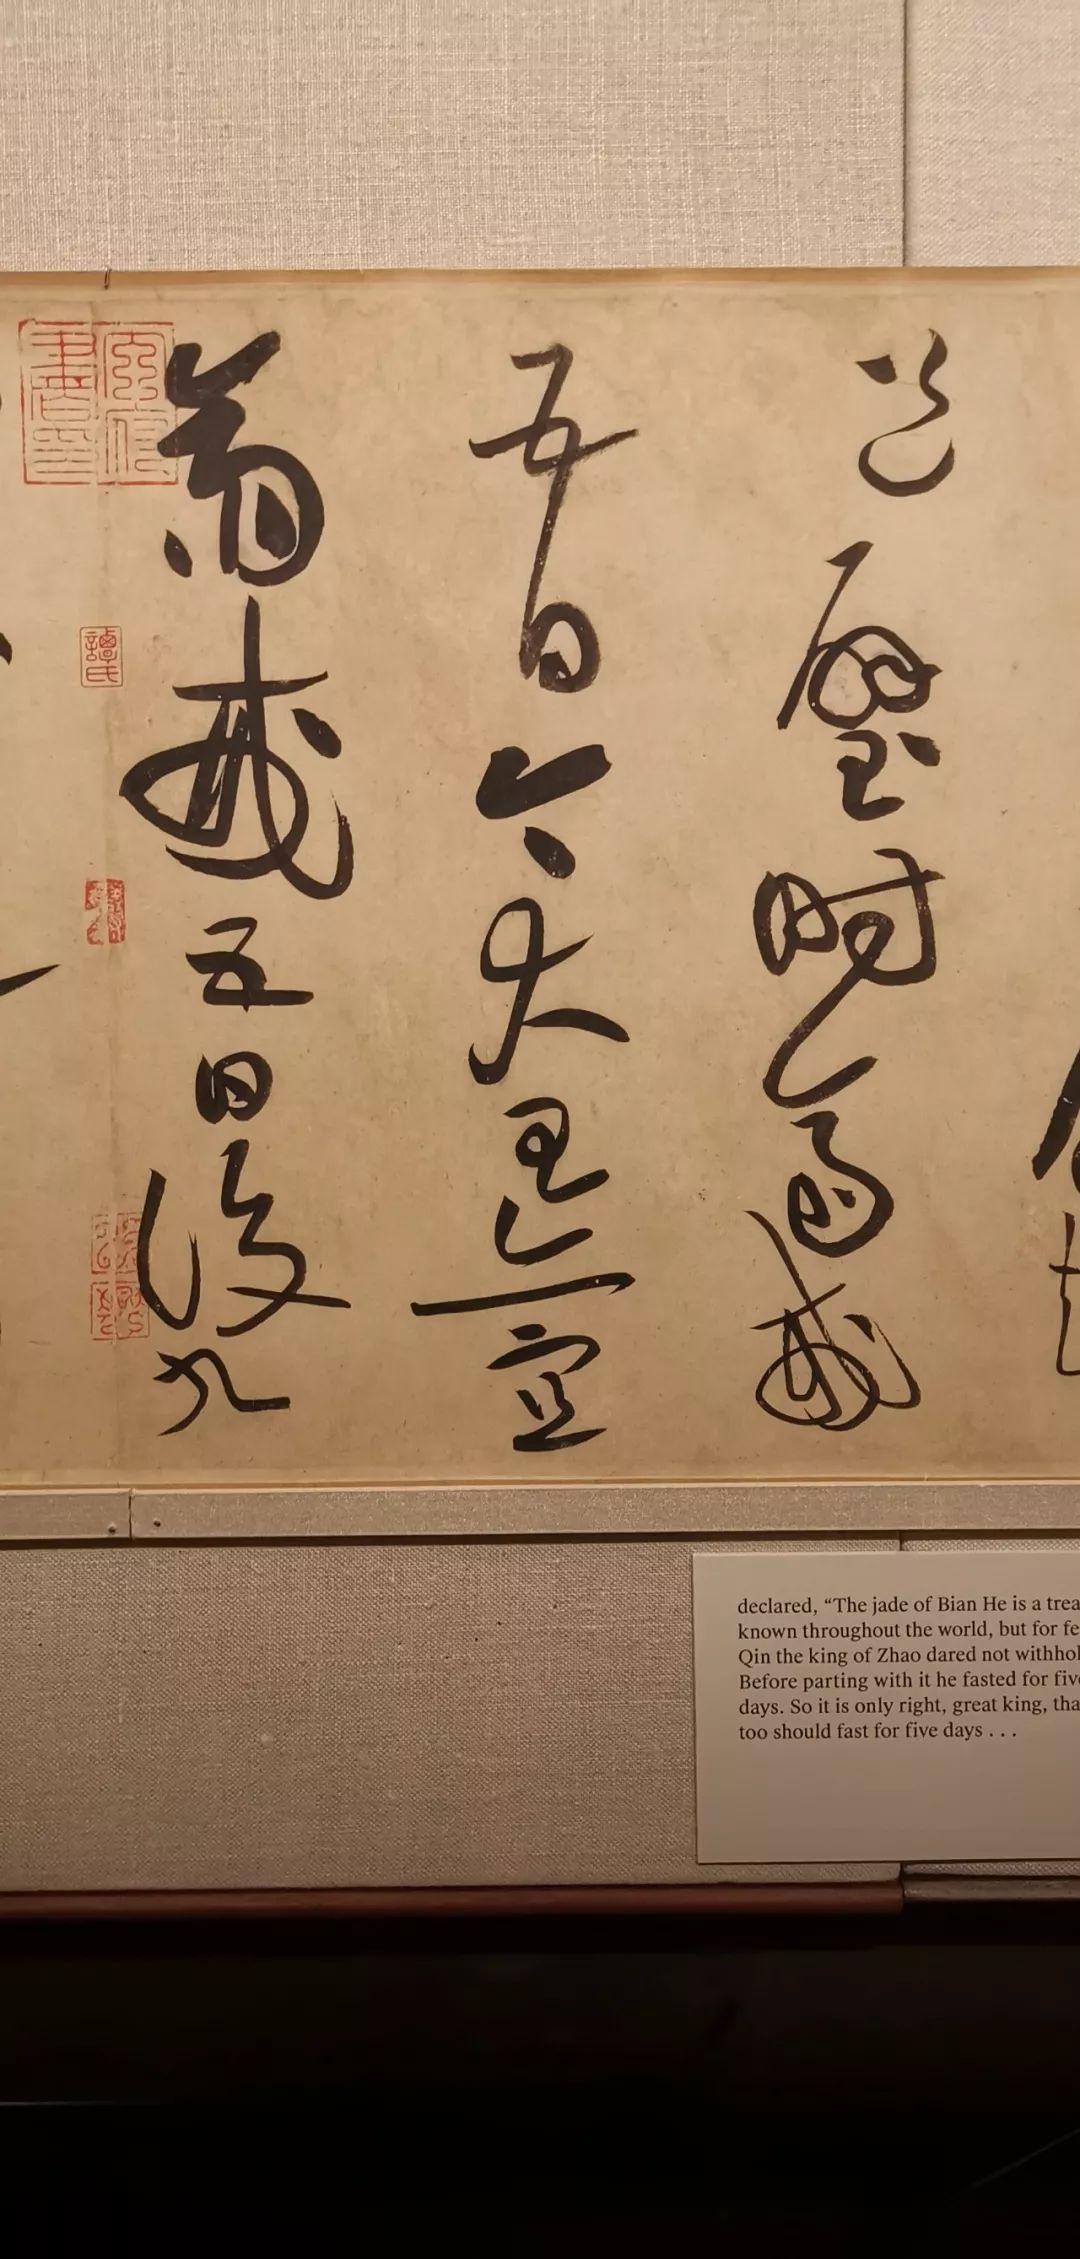 送璧時齋戒
五日今大王亦宜
齋戒五日設九
declared, “The jade of Bian He is a trea
known throughout the world, but for fe
Qin the king of Zhao dared not withhol
Before parting with it he fasted for five
days. So it is only right, great king, tha
too should fast for five days . . .